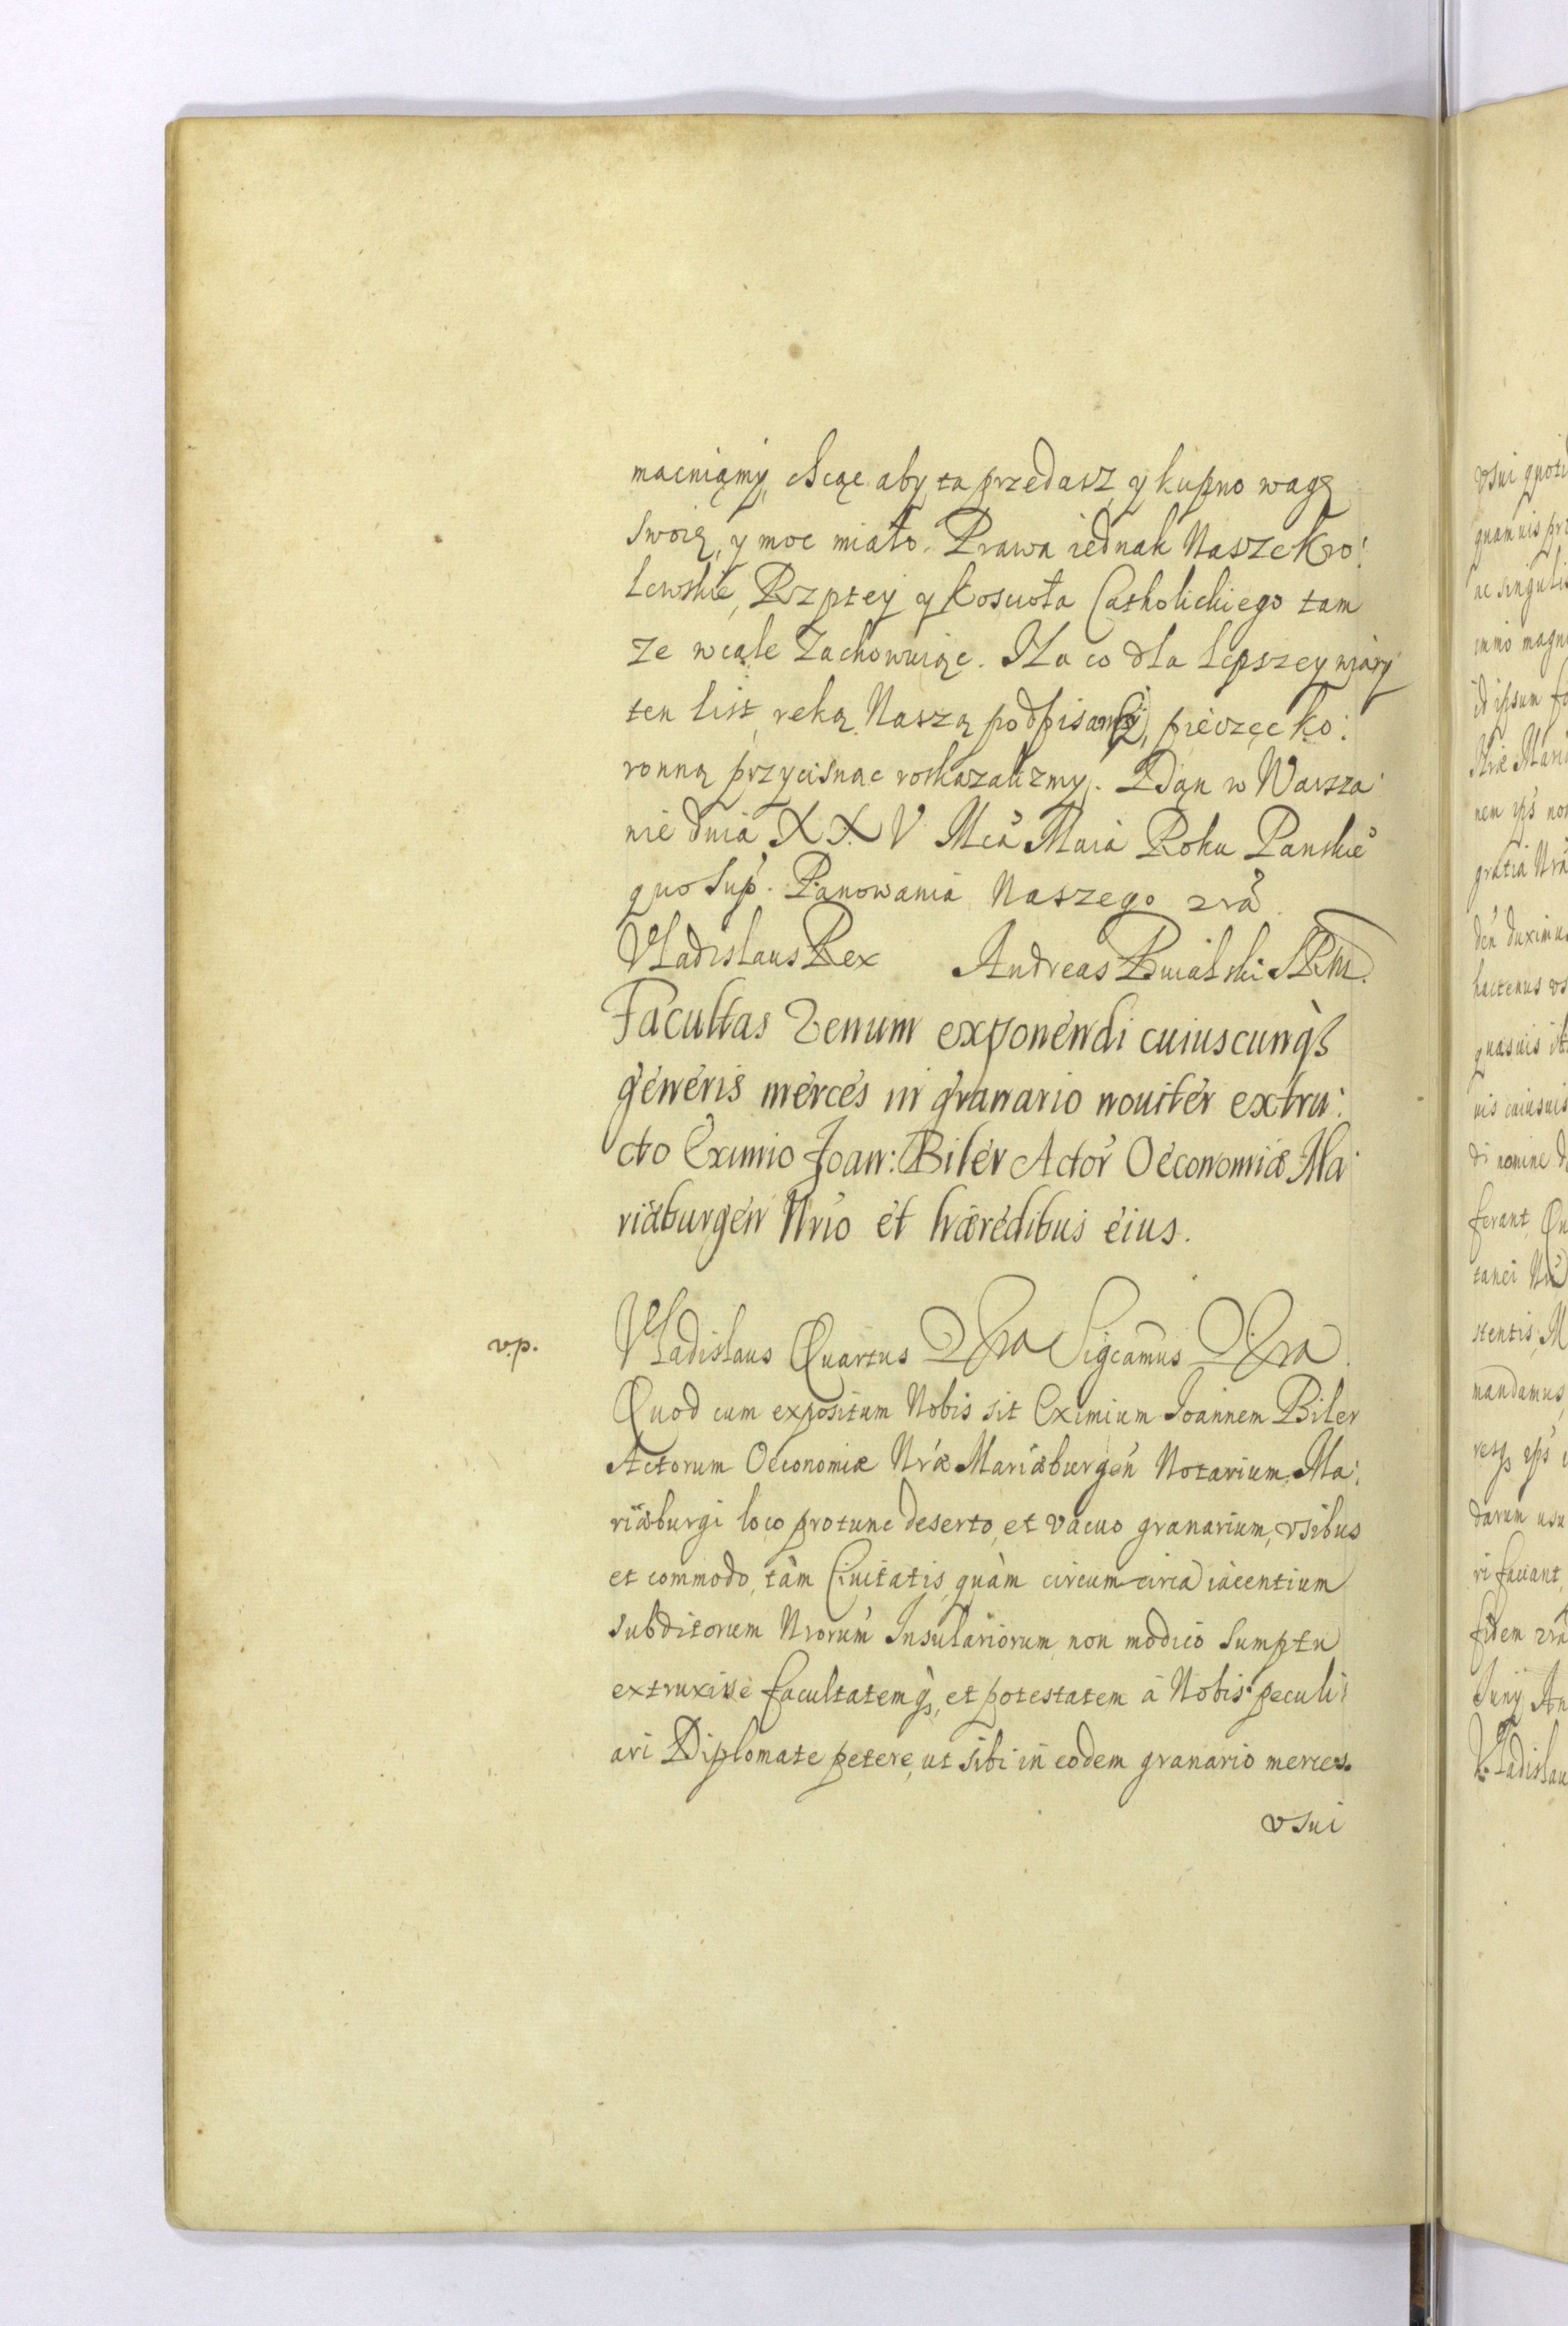 macniamy, chcąc aby ta przedasz y kupno wagę
swoię, y moc miało. Prawa iednak Nasze Kro:
lewskie, Rzptey y Koscioła Catholickiego tam
ze wcale Zachowuiąc. Na co dla lepszey wiary
ten list ręką Naszą podpisany, pieczęć ko:
ronną przycisnąc roskazalizmy. Dan w Warsza:
wie dnia XXV Mca Maia Roku Panskie
quo Sup. Panowania Naszego
Vladislaus Rex Andreas
Facultas Venum exponendi cuiuscunq
generis merces in granario nouiter extru:
cto Eximio Joan: Biler Actor Oeconomiæ Ma:
riæburgen Nrio et hæredibus eius.
v.p. Vladislaus Quartus Sigcamus
Quod cum expositum Nobis sit Eximium Ioannem Biler
Actorum Oeconomiæ Nræ Mariæburgen Notarium, Ma:
riæburgi loco protunc deserto, et vacuo granarium, vsibus
et commodo, tàm Ciuitatis, quàm circum circa iacentium
subditorum Nrorum Insulariorum non modico sumptu
extruxisse facultatemq, et potestatem à Nobis peculi:
ari Diplomate petere, ut sibi in eodem granario merces.
vsui
vsui
quamuis
ac singulis
id ipsum
Nræ
gratia
den duximus
hactenus
quasuis
di nomine
ferant
tanei
stentis
mandamus
darum usu
ri faciant
fidem
Iunij
Vladislaus